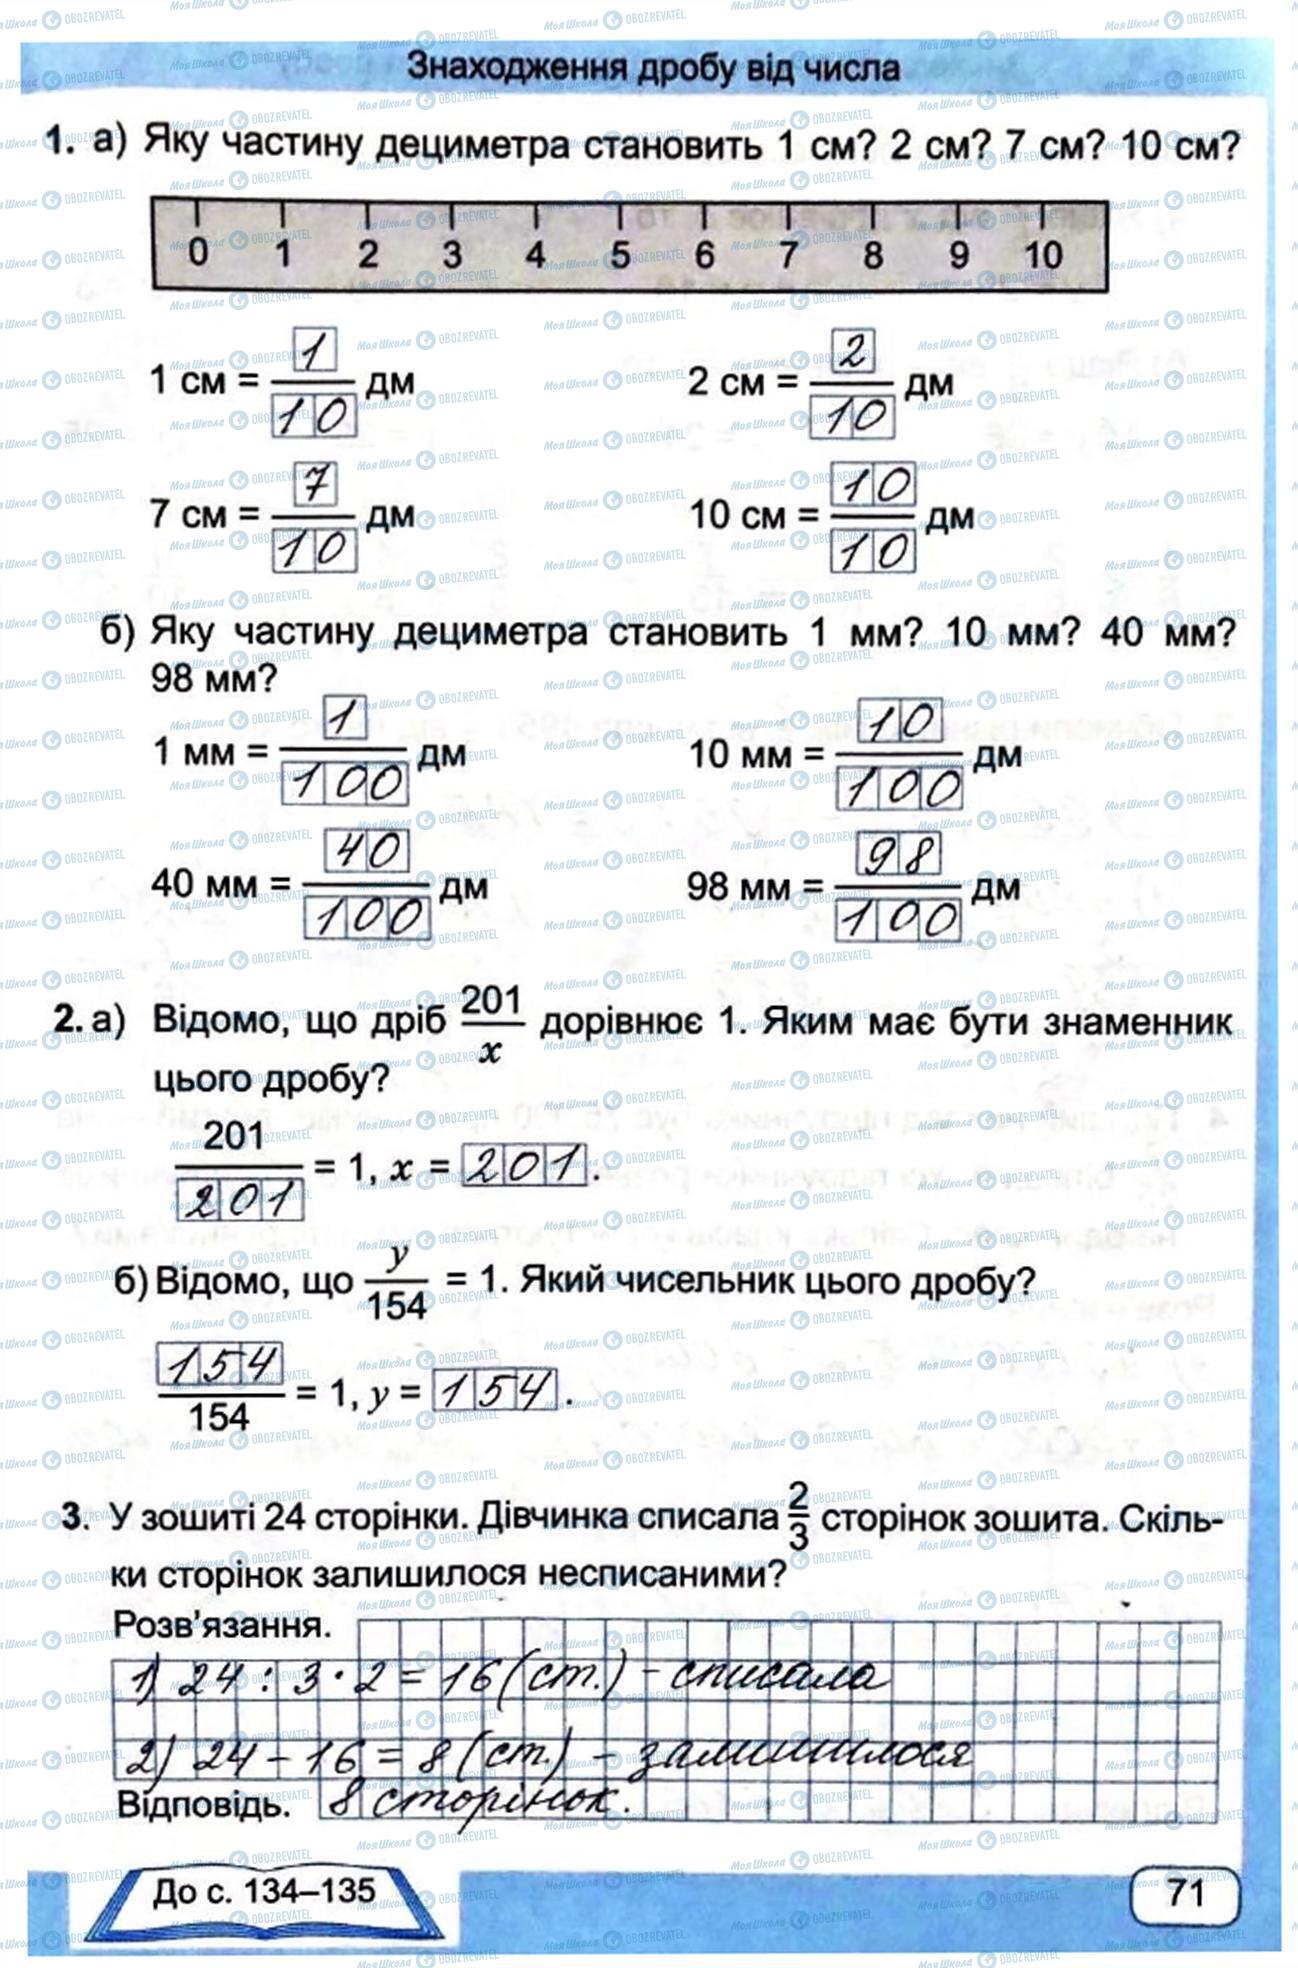 Знаходження дробу від числа
1. а) Яку частину дециметра становить 1 см? 2 см? 7 см? 10 см?
0 1 2 3 4 5 6 7 8 9 10
1 см = 1/10 дм 2 см = 2/10 дм
7 см = 7/10 дм 10 см = 10/10 дм
б) Яку частину дециметра становить 1 мм? 10 мм? 40 мм?
98 мм?
1 мм = 1/100 дм 10 мм = 10/100 дм
40 мм = 40/100 дм 98 мм = 98/100 дм
2. а) Відомо, що дріб 201/x дорівнює 1. Яким має бути знаменник
цього дробу?
201/201 = 1, x = 201.
б) Відомо, що y/154 = 1. Який чисельник цього дробу?
154/154 = 1, y = 154.
3. У зошиті 24 сторінки. Дівчинка списала 2/3 сторінок зошита. Скіль-
ки сторінок залишилося несписаними?
Розв'язання.
1) 24 : 3 · 2 = 16 (ст.) - списала
2) 24 - 16 = 8 (ст.) - залишилося
Відповідь. 8 сторінок.
До с. 134–135
71
МояШкола OBOZREVATEL